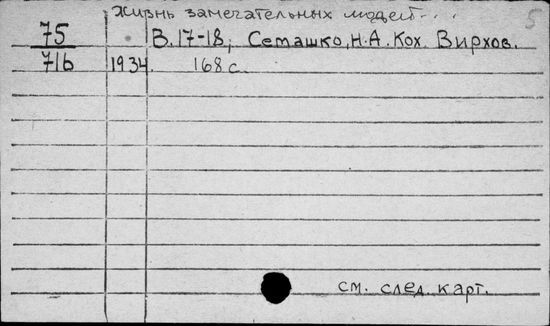 Жизнь замечательных людей...
5
75 В. 17-18, Семашко, Н.А. Кох. Вирхов.
716 1934. 168 с.
см. след. карт.